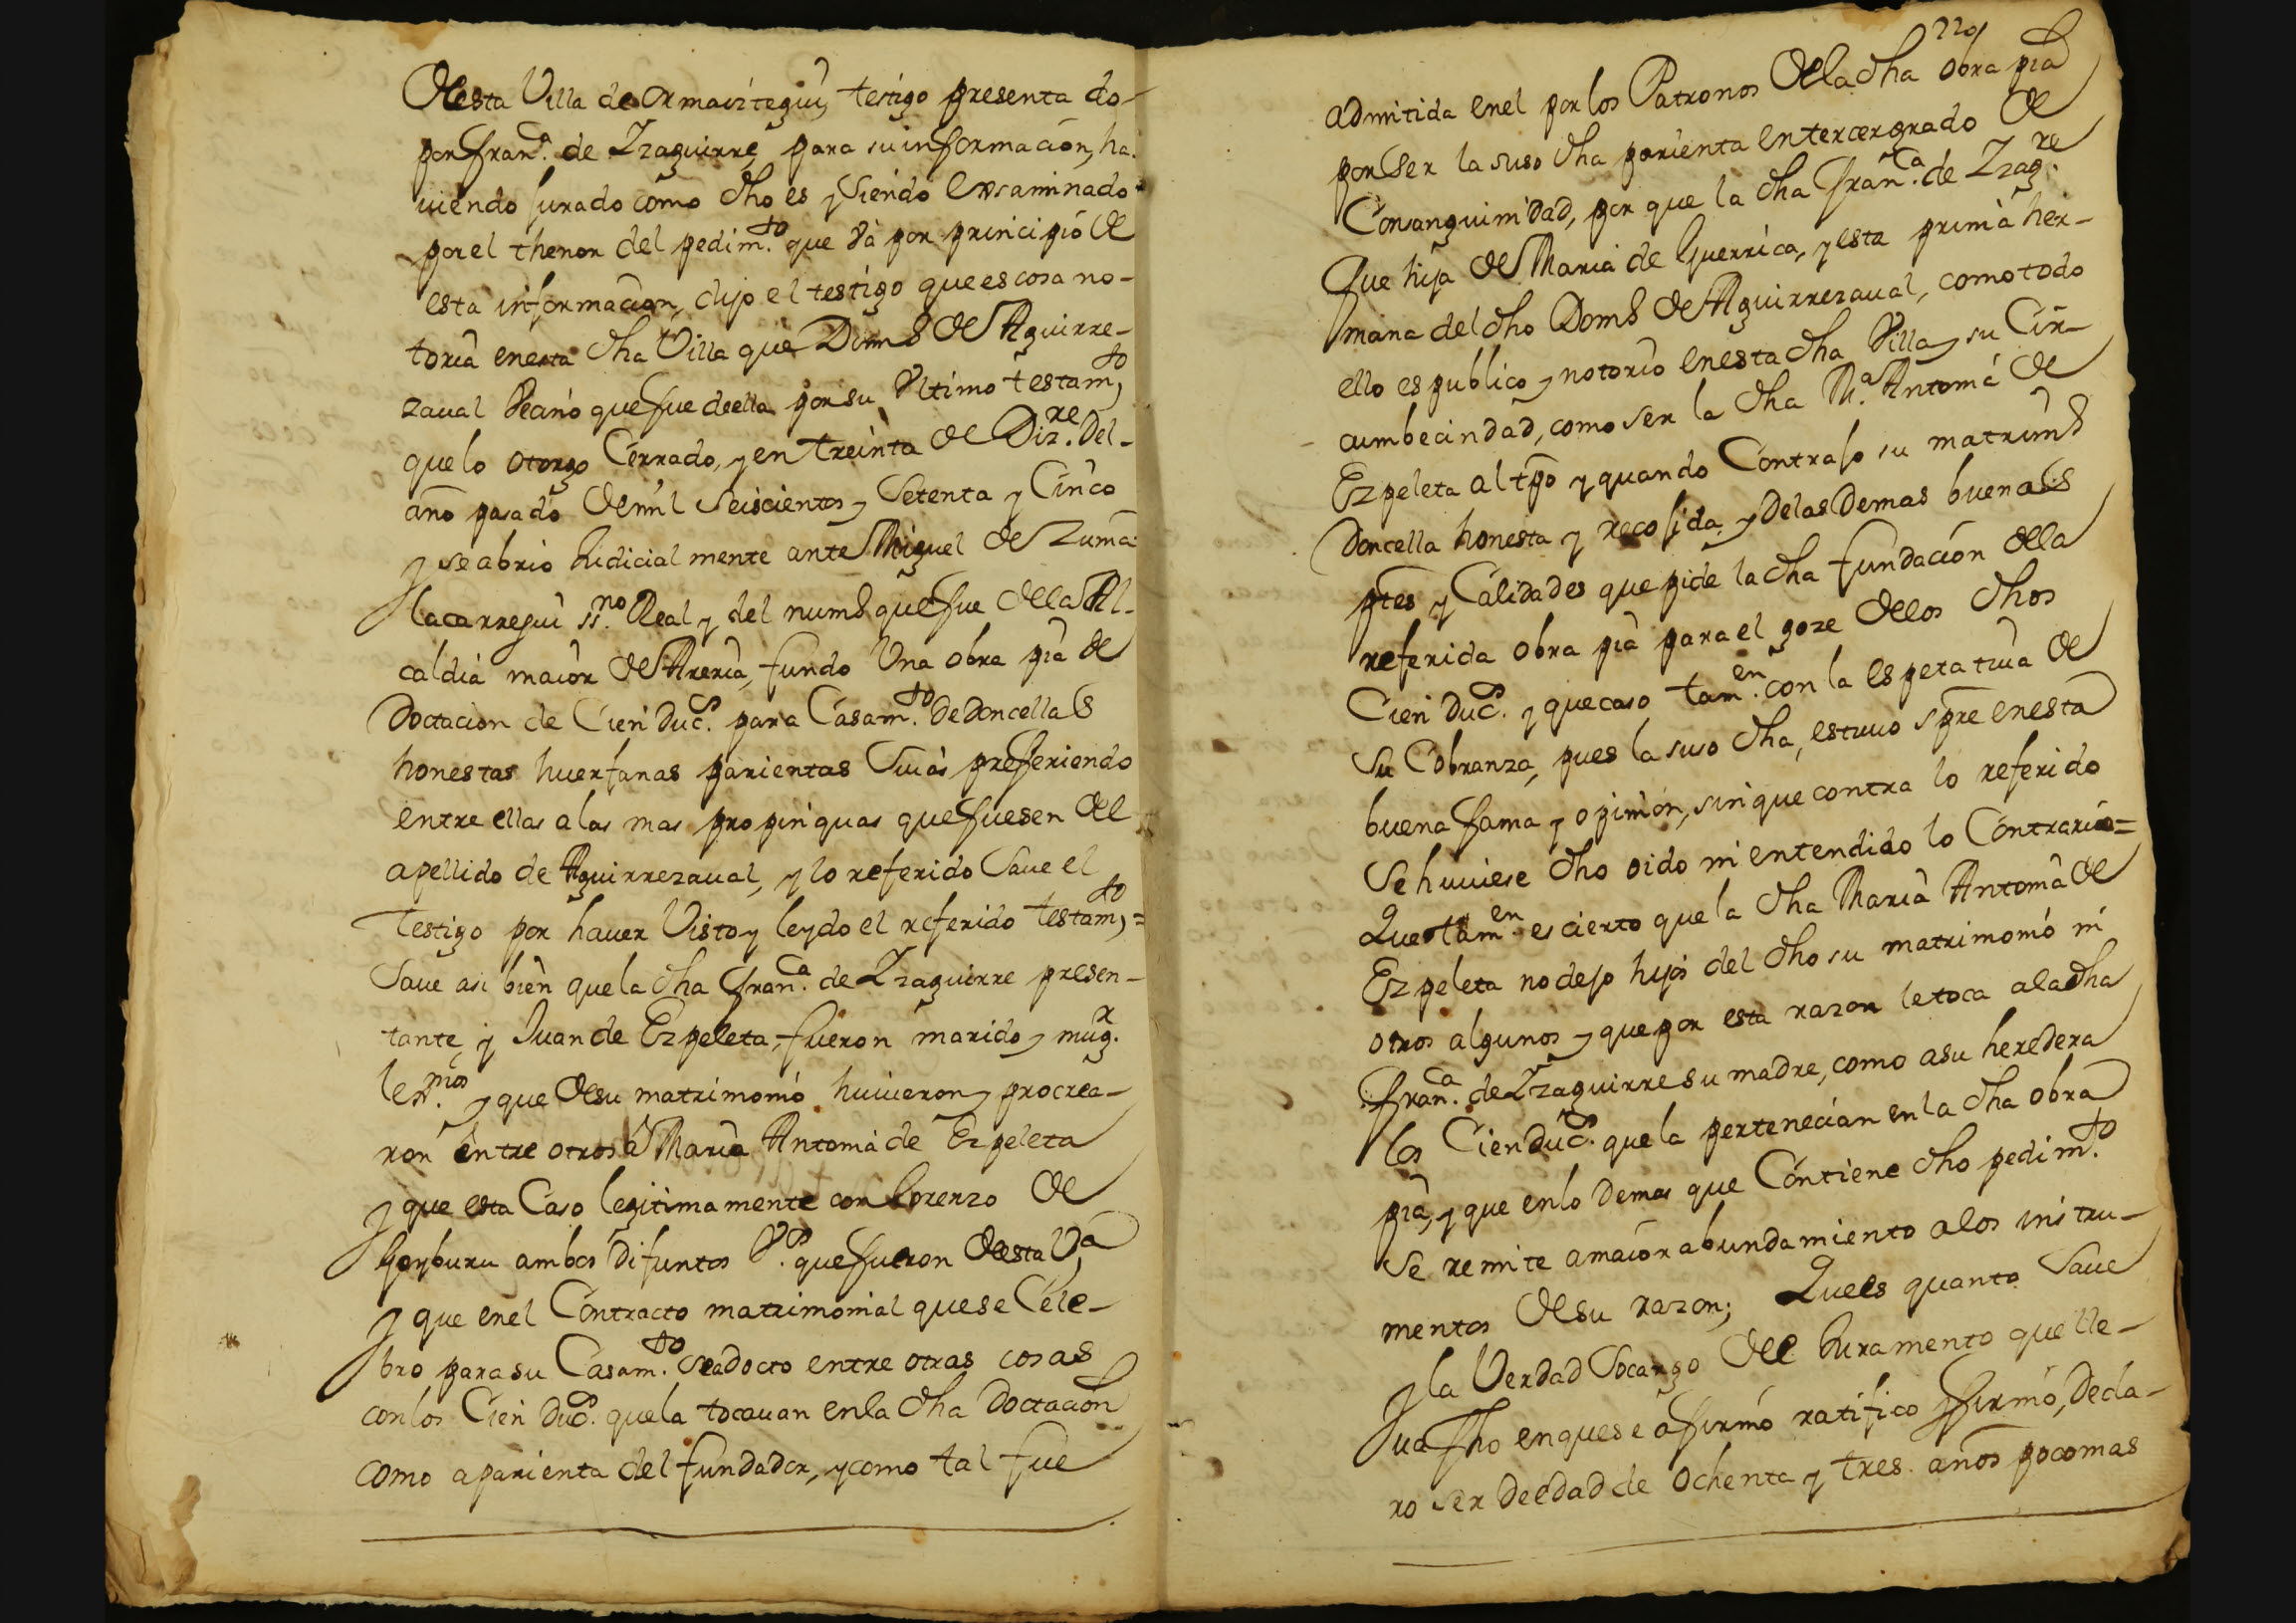 desta Villa de ormaiztegui, testigo presenta do-
por fran.ca de Yzaguirre para su información, ha-
uiendo jurado como dho es y siendo exsaminado
por el thenor del pedim.to que và por principio de
esta información, dijo el testigo que es cosa no-
toria en esta dha Villa que Domo de Aguirre-
zaual Vecino que fue de ella por su Vltimo testam,to
que lo otorgo Cerrado, y en treinta de Diz.re Del-
año pasado de mil seiscientos y setenta y Cinco
y se abrio Judicial mente ante Miguel de Zuma-
lacarregui ss.no Real y del numo que fue de la Al-
caldia maior de Areria, fundo Vna obra pia de
Doctacion de Cien Duc.s para Casam.to de Doncellas
honestas huerfanas parientas Suias preferiendo
entre ellas a las mas propinquas que fuesen del
apellido de Aguirrezaual, y lo referido Saue el
testigo por hauer Visto y leydo el referido testam,to =
Saue asi bien que la dha fran.ca de Yzaguirre presen-
tante, y Juan de Ezpeleta, fueron marido y mug.r
lex.mos y que de su matrimonio huuieron y procrea-
ron entre otros à Maria Antonia de Ezpeleta
y que esta Caso legitima mente con Lorenzo de
Goyburu ambos Difuntos V.os que fueron desta V,a
y que en el Contracto matrimonial que se Cele-
bro para su Casam.to se adocto entre otras cosas
con los Cien Duc.s que la tocauan en la dha Doctacion
como a parienta del fundador, y como tal fue
229
admitida en el por los Patronos de la dha obra pia
por ser la suso dha parienta en tercer grado de
Consanguinidad, por que la dha fran.ca de Yzag.re
fue hija de Maria de Guerrica, y esta prima her-
mana del dho Domo de Aguirrezaual, como todo
ello es publico y notorio en esta dha Villa y su Cir-
cumbecindad, como ser la dha M.a Antonia de
Ezpeleta al tpo y quando Contrajo su matrimo
Doncella honesta y recojida y de las Demas buenas
ptes y Calidades que pide la dha fundación de la
referida obra pia para el goze de los dhos
Cien Duc.s y que caso tam.en con la esperatiua de
Su Cobranza, pues la suso dha, estuuo spre en esta
buena fama y opinion, sin que contra lo referido
Se huuiese dho oido ni entendido lo Contrario =
Que tam.en es cierto que la dha Maria Antonia de
Ezpeleta no dejo hijos del dho su matrimonio ni
otros algunos y que por esta razon le toca a la dha
fran.ca de Yzaguirre su madre, como a su heredera
los Cien Duc.s que la pertenecian en la dha obra
pia, y que en lo demas que Contiene dho pedim.to
se remite a maior abundamiento a los instru-
mentos de su razon; Que es quanto Saue
y la Verdad Socargo del Juramento que lle-
ua fho en que se afirmó ratifico y firmó, Decla-
ro ser de edad de ochenta y tres años poco mas